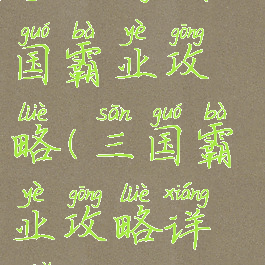 guó bà yè gōng
国霸业攻
lüè sān guó bà
略(三国霸
yè gōng lüè xiáng
业攻略详